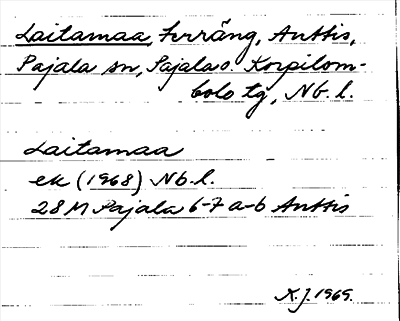 Laitamaa, terräng, Anttis,
Pajala sn, Pajala o. Korpilom-
bolo tg, Nb. l.
Laitamaa
ek (1968) Nb. l.
28 M Pajala 6-7 a-b Anttis
K. J. 1969.